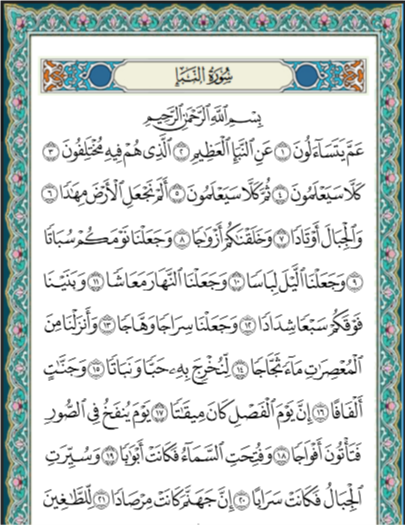 سُورَةُ النَّبَإِ
بِسْمِ ٱللَّهِ ٱلرَّحْمَٰنِ ٱلرَّحِيمِ
عَمَّ يَتَسَآءَلُونَ ١ عَنِ ٱلنَّبَإِ ٱلْعَظِيمِ ٢ ٱلَّذِى هُمْ فِيهِ مُخْتَلِفُونَ ٣
كَلَّا سَيَعْلَمُونَ ٤ ثُمَّ كَلَّا سَيَعْلَمُونَ ٥ أَلَمْ نَجْعَلِ ٱلْأَرْضَ مِهَٰدًا ٦
وَٱلْجِبَالَ أَوْتَادًا ٧ وَخَلَقْنَٰكُمْ أَزْوَٰجًا ٨ وَجَعَلْنَا نَوْمَكُمْ سُبَاتًا
٩ وَجَعَلْنَا ٱلَّيْلَ لِبَاسًا ١٠ وَجَعَلْنَا ٱلنَّهَارَ مَعَاشًا ١١ وَبَنَيْنَا
فَوْقَكُمْ سَبْعًا شِدَادًا ١٢ وَجَعَلْنَا سِرَاجًا وَهَّاجًا ١٣ وَأَنزَلْنَا مِنَ
ٱلْمُعْصِرَٰتِ مَآءً ثَجَّاجًا ١٤ لِّنُخْرِجَ بِهِۦ حَبًّا وَنَبَاتًا ١٥ وَجَنَّٰتٍ
أَلْفَافًا ١٦ إِنَّ يَوْمَ ٱلْفَصْلِ كَانَ مِيقَٰتًا ١٧ يَوْمَ يُنفَخُ فِى ٱلصُّورِ
فَتَأْتُونَ أَفْوَاجًا ١٨ وَفُتِحَتِ ٱلسَّمَآءُ فَكَانَتْ أَبْوَٰبًا ١٩ وَسُيِّرَتِ
ٱلْجِبَالُ فَكَانَتْ سَرَابًا ٢٠ إِنَّ جَهَنَّمَ كَانَتْ مِرْصَادًا ٢١ لِّلطَّٰغِينَ